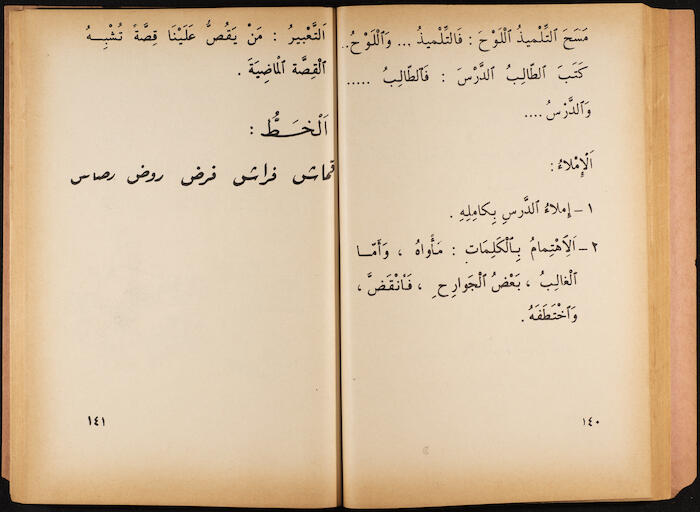 مَسَحَ ٱلتِّلْميذُ ٱللَوْحَ : فَالتِّلْميذُ ... وَٱللَوْحُ..
كَتَبَ ٱلطّالِبُ ٱلدَّرْسَ : فَٱلطّالِبُ .....
وَٱلدَّرْسُ ....
اَلْإِمْلاءُ :
١ – إِملاءُ ٱلدَّرسِ بِكامِلِهِ .
٢ – اَلِٱهْتِمامُ بِٱلْكَلِمَاتِ : مَأْواهُ ، وَأَمّا
ٱلْغالِبُ ، بَعْضُ ٱلْجَوارِحِ ، فَٱنْقَضَّ ،
وَٱخْتَطَفَهُ .
١٤٠
اَلتَّعْبيرُ : مَنْ يَقُصُّ عَلَيْنا قِصَّةً تُشْبِهُ
ٱلْقِصَّة ٱلْماضِيَةَ .
اَلْخَطُّ :
قماش فراش فرض روض رصاص
١٤١